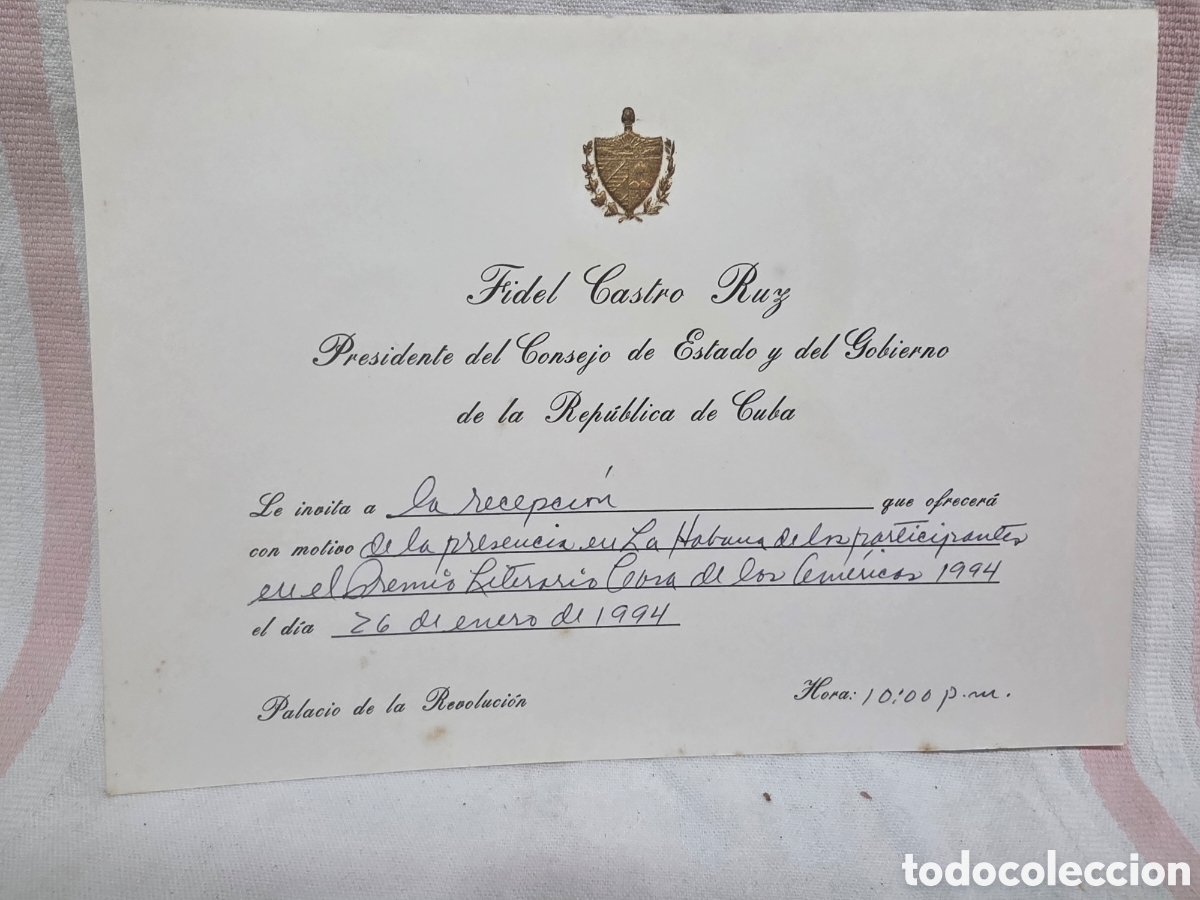 Fidel Castro Ruz
Presidente del Consejo de Estado y del Gobierno
de la República de Cuba
Le invita a la recepción que ofrecerá
con motivo de la presencia en La Habana de los participantes
en el Premio Literario Casa de las Américas 1994
el día 26 de enero de 1994
Palacio de la Revolución Hora: 10:00 p.m.
todocoleccion